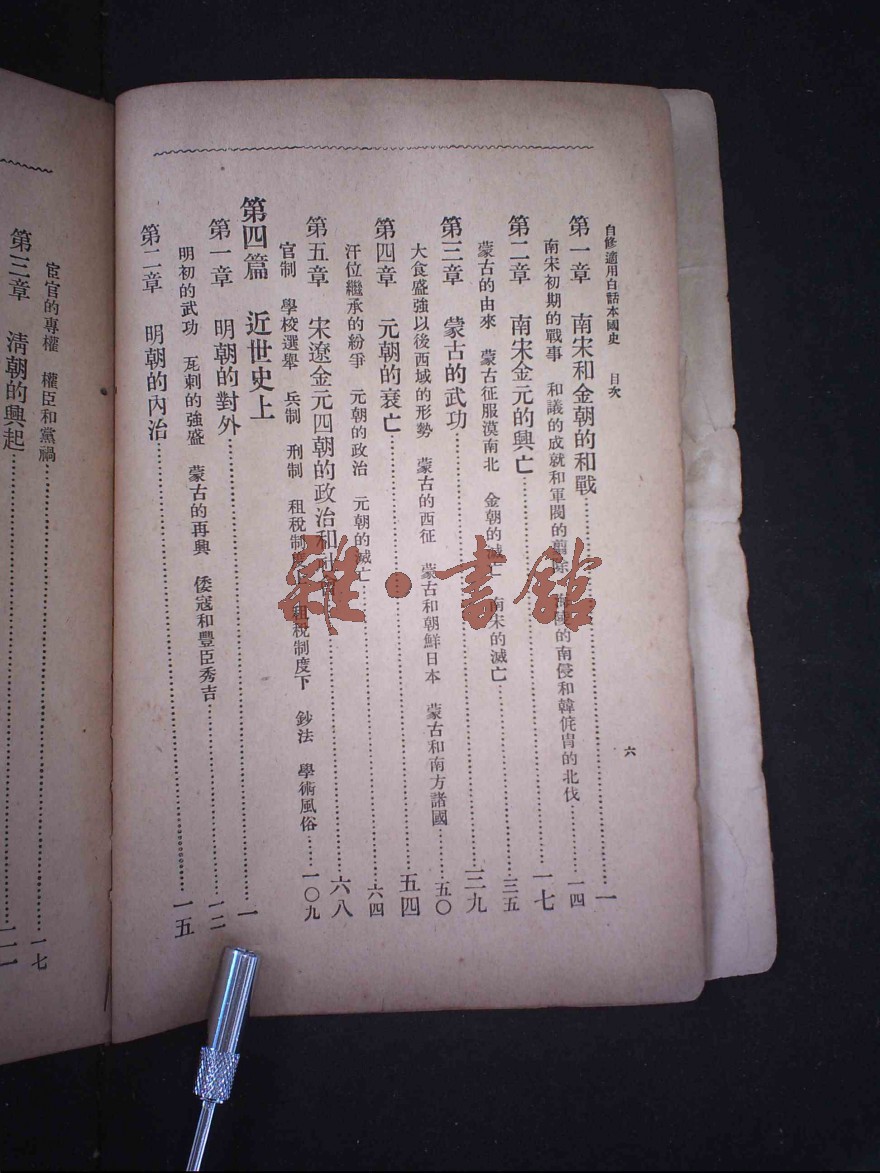 自修適用白話本國史 目次 六
第一章 南宋和金朝的和戰……一
南宋初期的戰事 和議的成就和軍閥的翦除 海陵的南侵和韓侂胄的北伐……一四
第二章 南宋金元的興亡……一七
蒙古的由來 蒙古征服漠南北 金朝的滅亡 南宋的滅亡……三五
第三章 蒙古的武功……三九
大食盛強以後西域的形勢 蒙古的西征 蒙古和朝鮮日本 蒙古和南方諸國……五〇
第四章 元朝的衰亡……五四
汗位繼承的紛爭 元朝的政治 元朝的滅亡……六四
第五章 宋遼金元四朝的政治和社會……六八
官制 學校選舉 兵制 刑制 租稅制度上 租稅制度下 鈔法 學術風俗……一〇九
第四篇 近世史上
第一章 明朝的對外……一
明初的武功 瓦剌的強盛 蒙古的再興 倭寇和豐臣秀吉……一二
第二章 明朝的內治……一五
宦官的專權 權臣和黨禍……一七
第三章 清朝的興起……
雜·書館